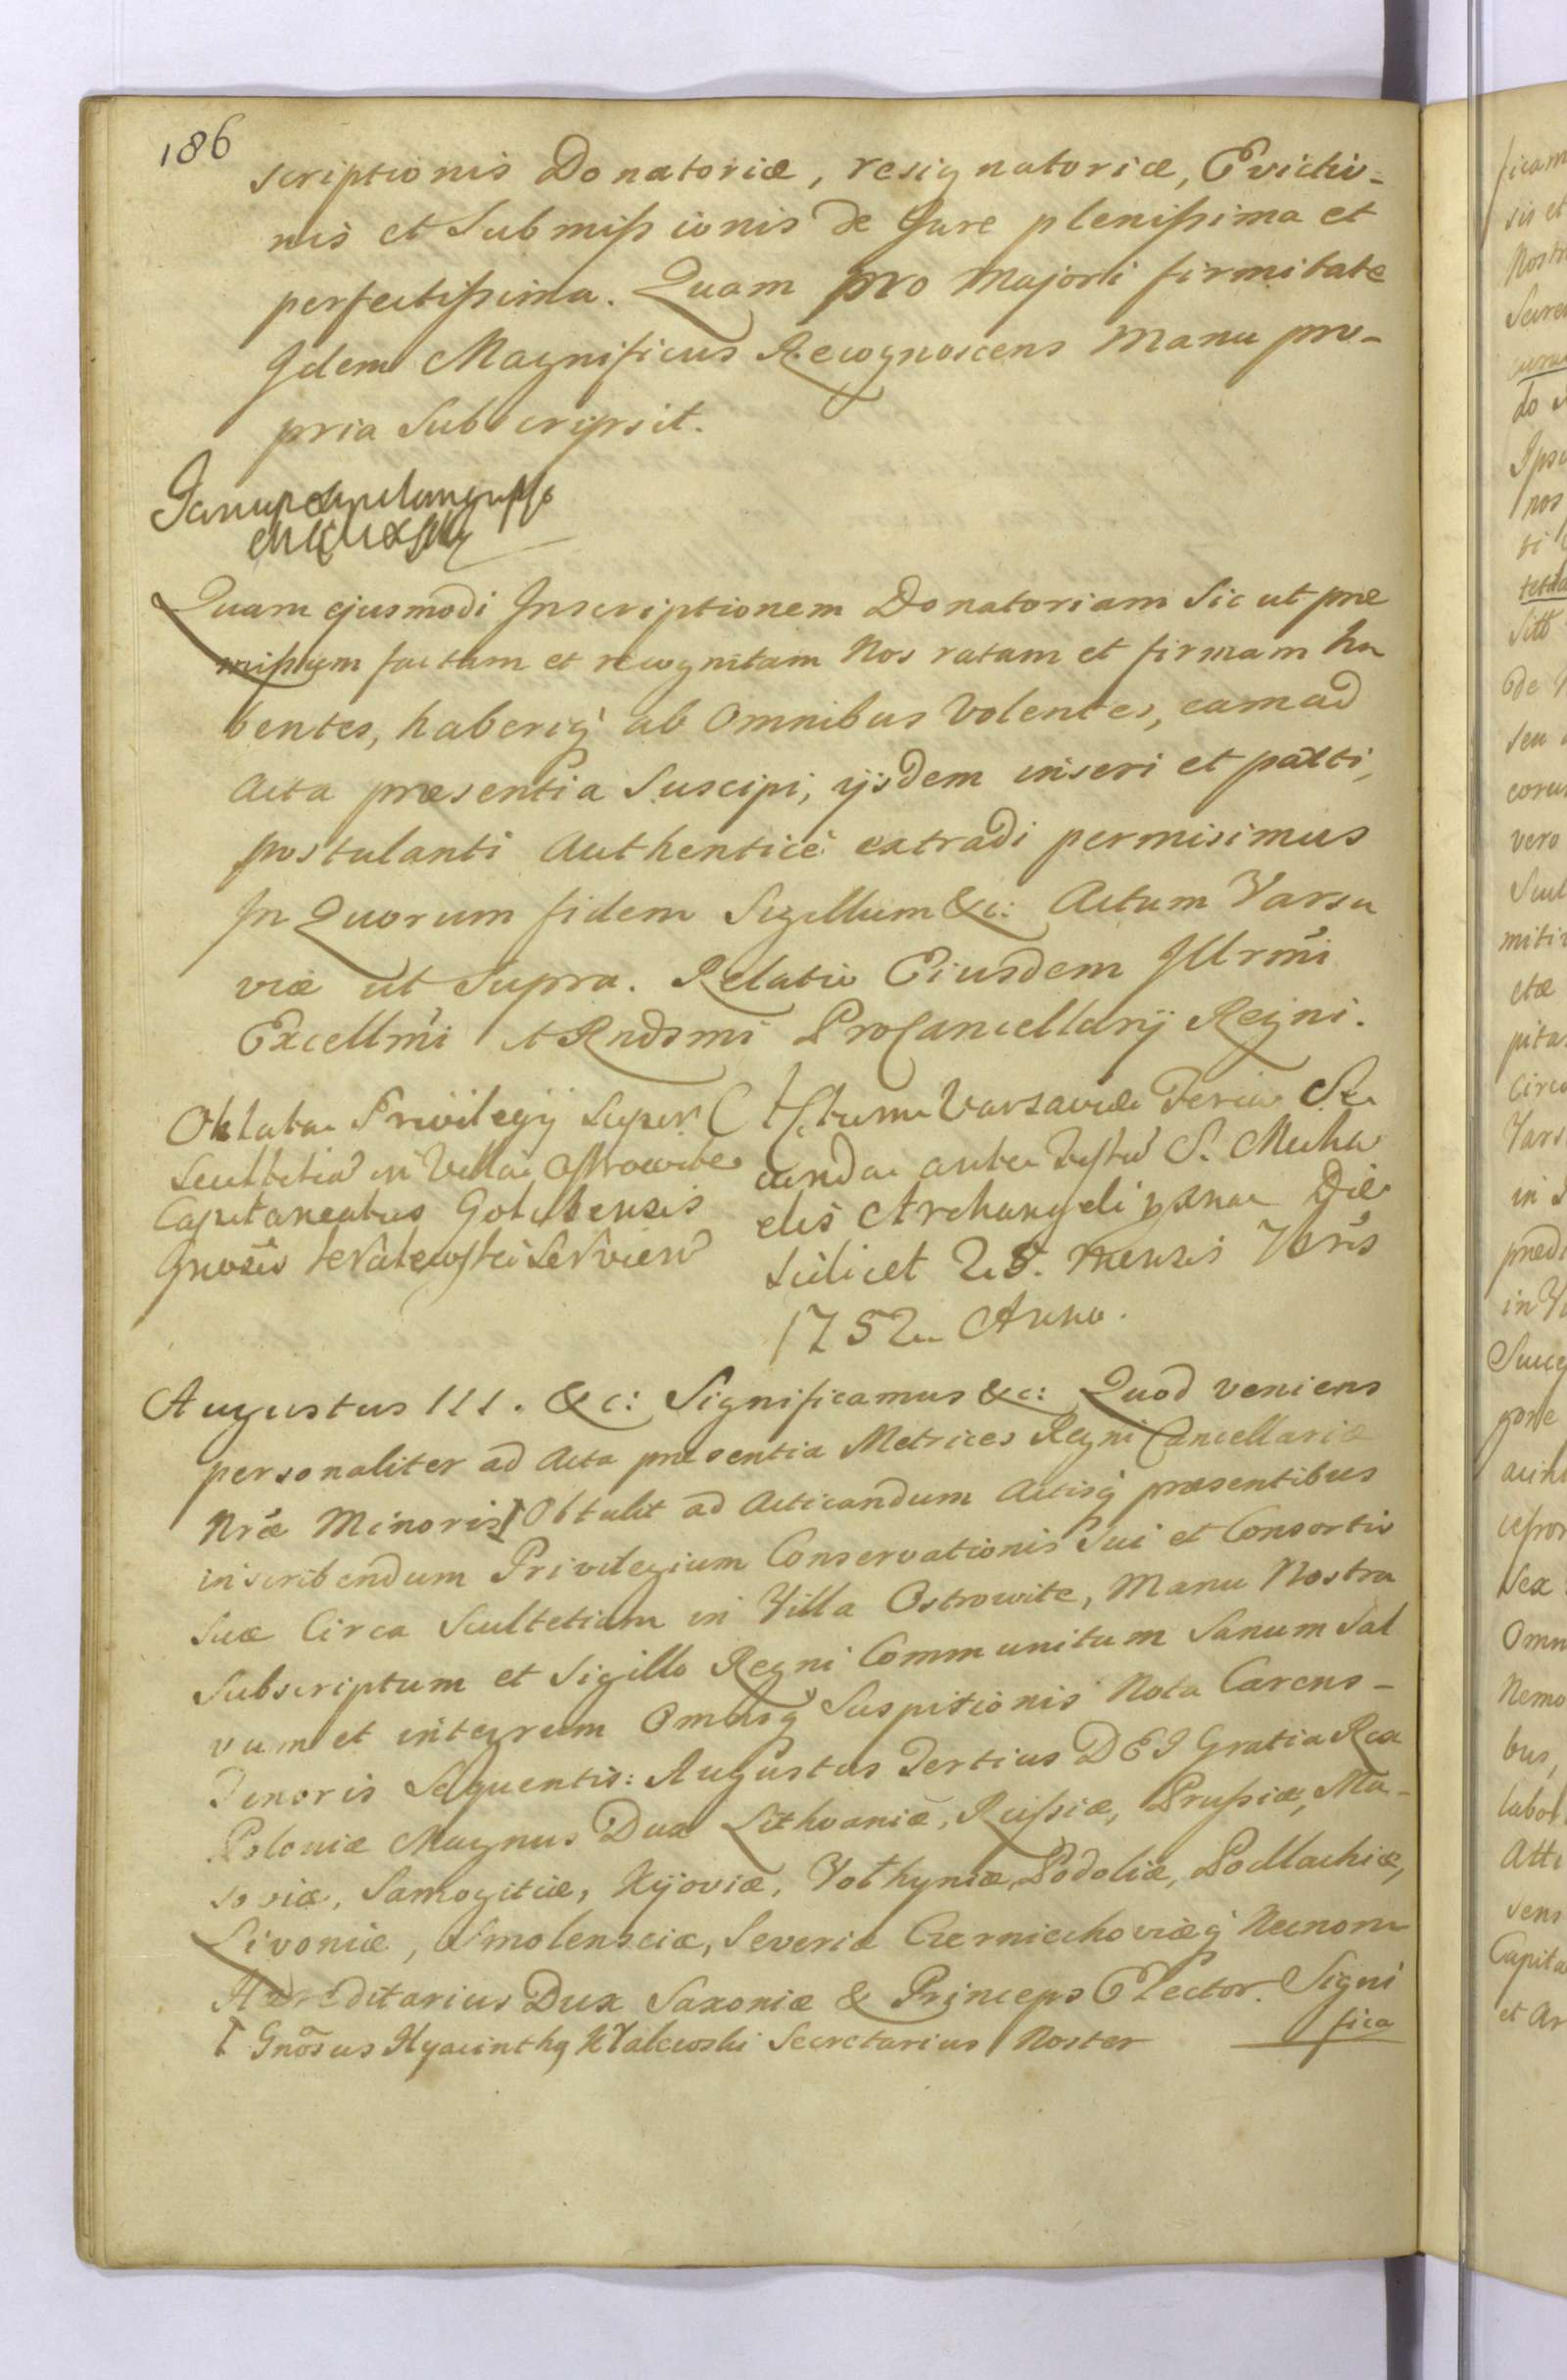 186
scriptionis Donatoriæ, resignatoriæ, Evictio-
nis et Submissionis de Jure plenissima et
perfectissima. Quam pro Majori firmitate
Idem Magnificus Recognoscens Manu pro-
pria Subscripsit.
Quam ejusmodi Inscriptionem Donatoriam Sic ut præ
missum factam et recognitam Nos ratam et firmam ha
bentes, haberiq ab Omnibus Volentes, eam ad
Acta præsentia Suscipi, ijsdem inseri et parti,
postulanti Authenticè extradi permisimus
In Quorum fidem Sigillum &c: Actum Varsa
viæ ut Supra. Relatio Eiusdem Illrmi
Excellmi et Rndsmi ProCancellarij Regni.
Oblata Privilegij Super
Scultetia in Villa Ostrowite
Capitaneatus Golubensis
Gnoso Kralewski Servien
Actum Varsaviæ Feria Se
cunda ante Festu S. Micha
elis Archangeli Die
Scilicet 25. Mensis 7bris
1752 Anno.
Augustus III. &c: Significamus &c: Quod veniens
personaliter ad Acta præsentia Metrices Regni Cancellariæ
Nræ Minoris Obtulit ad Acticandum Actisq præsentibus
inscribendum Privilegium Conservationis Sui et Consortis
Suæ Circa Scultetiam in Villa Ostrowite, Manu Nostra
Subscriptum et Sigillo Regni Communitum Sanum Sal
vum et integrum Omnisq Suspitionis Nota Carens-
Tenoris Sequentis: Augustus Tertius DEI Gratia Rex
Poloniæ Magnus Dux Lithvaniæ, Russiæ, Prussiæ, Ma-
soviæ, Samogitiæ, Kijoviæ, Volhyniæ, Podoliæ, Podlachiæ,
Livoniæ, Smolensciæ, Severiæ Czerniechoviæq Necnon
Hæreditarius Dux Saxoniæ & Princeps Elector. Signi
fica
Gnosus Hyacinthq Kralewski Secretarius Noster